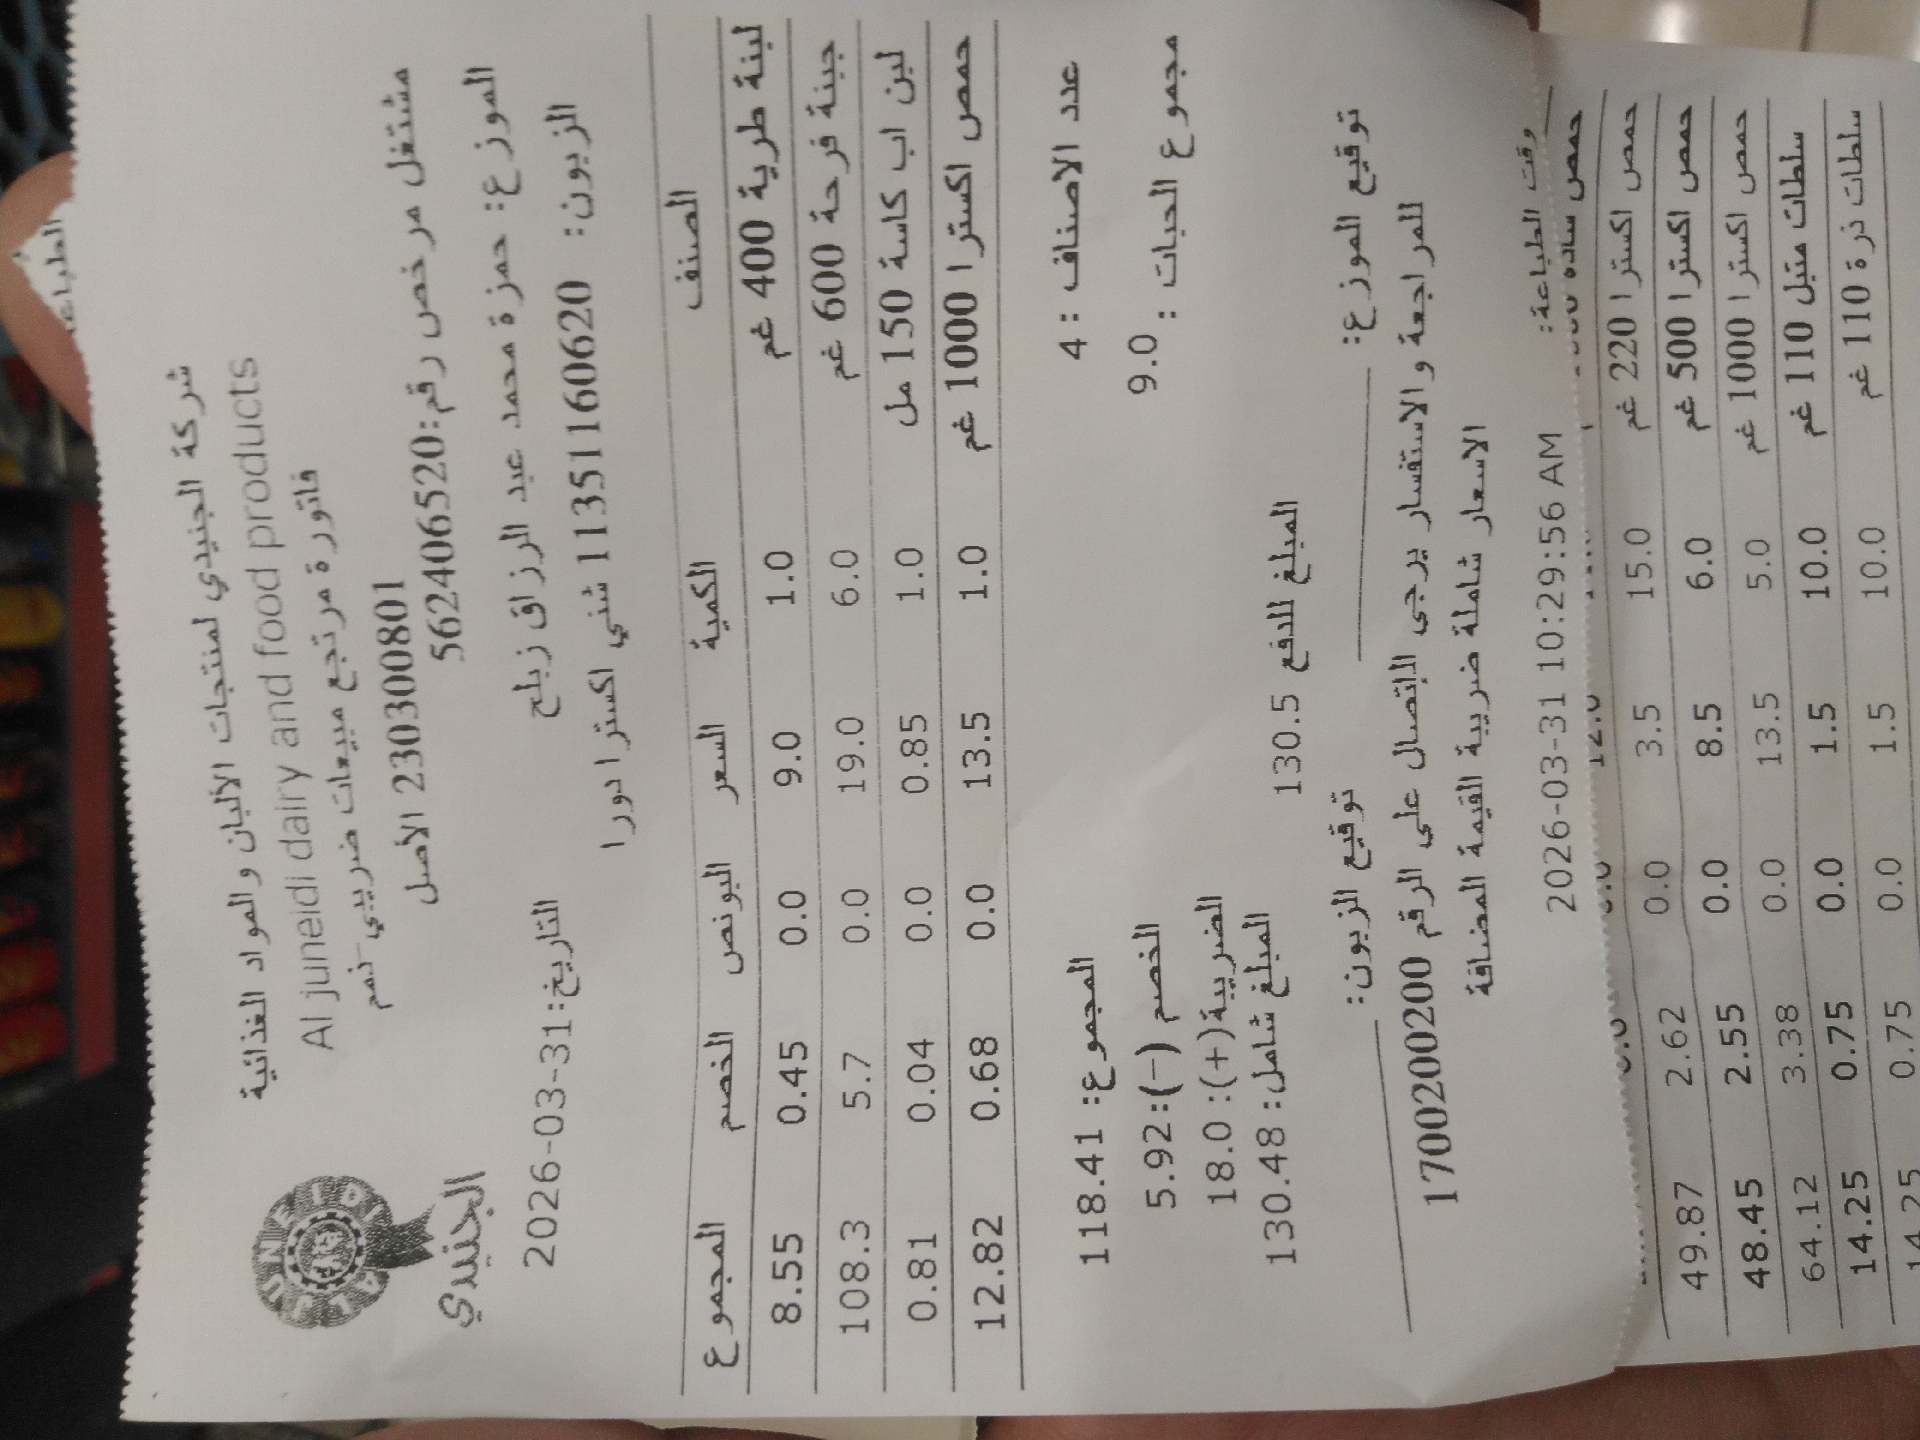 الطباعة
شركة الجنيدي لمنتجات الألبان والمواد الغذائية
Al juneidi dairy and food products
فاتورة مرتجع مبيعات ضريبي-ذمم
230300801 الأصل
مشتغل مرخص رقم:562406520
JUNEIDI
الجنيدي
الموزع: حمزة محمد عبد الرزاق زبلح
التاريخ:31-03-2026
الزبون: 11351160620 شني اكسترا دورا
الصنف الكمية السعر البونص الخصم المجموع
لبنة طرية 400 غم 1.0 9.0 0.0 0.45 8.55
جبينة فرحة 600 غم 6.0 19.0 0.0 5.7 108.3
لبن اب كاسة 150 مل 1.0 0.85 0.0 0.04 0.81
حمص اكسترا 1000 غم 1.0 13.5 0.0 0.68 12.82
عدد الاصناف : 4 المجموع: 118.41
مجموع الحبات : 9.0 الخصم (-):5.92
الضريبة(+): 18.0
المبلغ للدفع 130.5 المبلغ شامل: 130.48
توقيع الموزع: توقيع الزبون:
للمراجعة والاستفسار يرجى الإتصال على الرقم 1700200200
الاسعار شاملة ضريبة القيمة المضافة
وقت الطباعة: 2026-03-31 10:29:56 AM
حمص سادة 12.0
حمص اكسترا 220 غم 15.0 3.5 0.0 2.62 49.87
حمص اكسترا 500 غم 6.0 8.5 0.0 2.55 48.45
حمص اكسترا 1000 غم 5.0 13.5 0.0 3.38 64.12
سلطات متبل 110 غم 10.0 1.5 0.0 0.75 14.25
سلطات ذرة 110 غم 10.0 1.5 0.0 0.75 14.25